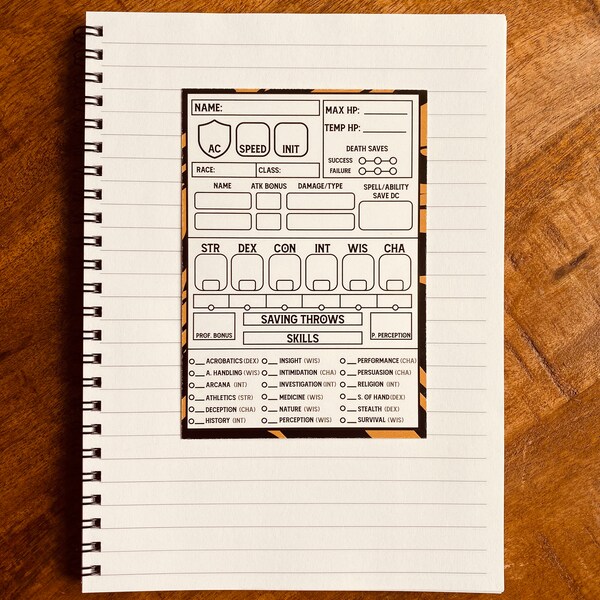 NAME:
MAX HP:
TEMP HP:
AC SPEED INIT
DEATH SAVES
SUCCESS
FAILURE
RACE: CLASS:
NAME ATK BONUS DAMAGE/TYPE SPELL/ABILITY
SAVE DC
STR DEX CON INT WIS CHA
SAVING THROWS
PROF. BONUS SKILLS P. PERCEPTION
ACROBATICS (DEX) INSIGHT (WIS) PERFORMANCE (CHA)
A. HANDLING (WIS) INTIMIDATION (CHA) PERSUASION (CHA)
ARCANA (INT) INVESTIGATION (INT) RELIGION (INT)
ATHLETICS (STR) MEDICINE (WIS) S. OF HAND (DEX)
DECEPTION (CHA) NATURE (WIS) STEALTH (DEX)
HISTORY (INT) PERCEPTION (WIS) SURVIVAL (WIS)